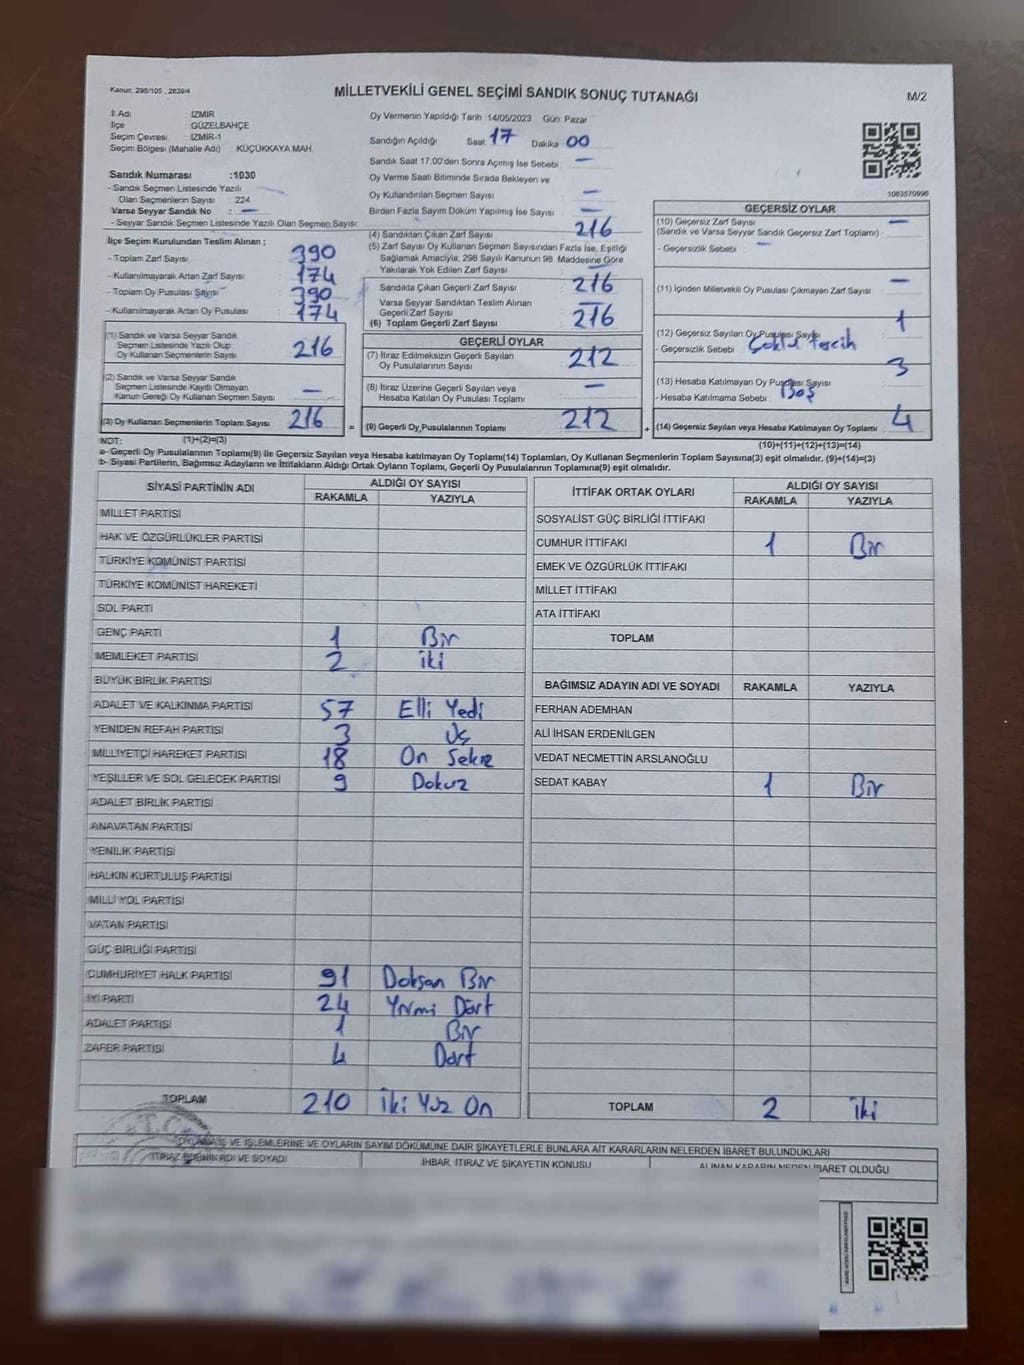 Kanun: 298/105 , 2839/4
MİLLETVEKİLİ GENEL SEÇİMİ SANDIK SONUÇ TUTANAĞI
M/2
İl Adı : İZMİR
İlçe : GÜZELBAHÇE
Seçim Çevresi : İZMİR-1
Seçim Bölgesi (Mahalle Adı) : KÜÇÜKKAYA MAH.
Sandık Numarası :1030
- Sandık Seçmen Listesinde Yazılı
Olan Seçmenlerin Sayısı : 224
Varsa Seyyar Sandık No : —
- Seyyar Sandık Seçmen Listesinde Yazılı Olan Seçmen Sayısı:
Oy Vermenin Yapıldığı Tarih :14/05/2023 Gün: Pazar
Sandığın Açıldığı Saat: 17 Dakika: 00
Sandık Saat 17.00'den Sonra Açımış İse Sebebi : —
Oy Verme Saati Bitiminde Sırada Bekleyen ve
Oy Kullandırılan Seçmen Sayısı : —
Birden Fazla Sayım Döküm Yapılmış İse Sayısı : —
1063570996
İlçe Seçim Kurulundan Teslim Alınan ;
- Toplam Zarf Sayısı : 390
- Kullanılmayarak Artan Zarf Sayısı : 174
- Toplam Oy Pusulası Sayısı : 390
- Kullanılmayarak Artan Oy Pusulası : 174
(1) Sandık ve Varsa Seyyar Sandık
Seçmen Listesinde Yazılı Olup
Oy Kullanan Seçmenlerin Sayısı : 216
(2) Sandık ve Varsa Seyyar Sandık
Seçmen Listesinde Kayıtlı Olmayan
Kanun Gereği Oy Kullanan Seçmen Sayısı : —
(3) Oy Kullanan Seçmenlerin Toplam Sayısı : 216
(4) Sandıktan Çıkan Zarf Sayısı : 216
(5) Zarf Sayısı Oy Kullanan Seçmen Sayısından Fazla İse, Eşitliği
Sağlamak Amacıyle, 298 Sayılı Kanunun 98. Maddesine Göre
Yakılarak Yok Edilen Zarf Sayısı : —
Sandıkta Çıkan Geçerli Zarf Sayısı : 216
Varsa Seyyar Sandıktan Teslim Alınan
Geçerli Zarf Sayısı : —
(6) Toplam Geçerli Zarf Sayısı : 216
GEÇERLİ OYLAR
(7) İtiraz Edilmeksizin Geçerli Sayılan
Oy Pusulasının Sayısı : 212
(8) İtiraz Üzerine Geçerli Sayılan veya
Hesaba Katılan Oy Pusulası Toplamı : —
= (9) Geçerli Oy Pusulalarının Toplamı : 212
GEÇERSİZ OYLAR
(10) Geçersiz Zarf Sayısı : —
(Sandık ve Varsa Seyyar Sandık Geçersiz Zarf Toplamı)
- Geçersizlik Sebebi : —
(11) İçinden Milletvekili Oy Pusulası Çıkmayan Zarf Sayısı : —
(12) Geçersiz Sayılan Oy Pusulası Sayısı : 1
- Geçersizlik Sebebi : Çoklu Tercih
(13) Hesaba Katılmayan Oy Pusulası Sayısı : 3
- Hesaba Katılmama Sebebi : Boş
+ (14) Geçersiz Sayılan veya Hesaba Katılmayan Oy Toplamı : 4
NOT: (1)+(2)=(3)
(10)+(11)+(12)+(13)=(14)
a- Geçerli Oy Pusulalarının Toplamı(9) ile Geçersiz Sayılan veya Hesaba katılmayan Oy Toplamı(14) Toplamları, Oy Kullanan Seçmenlerin Toplam Sayısına(3) eşit olmalıdır. (9)+(14)=(3)
b- Siyasi Partilerin, Bağımsız Adayların ve İttifakların Aldığı Ortak Oyların Toplamı, Geçerli Oy Pusulalarının Toplamına(9) eşit olmalıdır.
SİYASİ PARTİNİN ADI ALDIĞI OY SAYISI
RAKAMLA YAZIYLA
MİLLET PARTİSİ
HAK VE ÖZGÜRLÜKLER PARTİSİ
TÜRKİYE KOMÜNİST PARTİSİ
TÜRKİYE KOMÜNİST HAREKETİ
SOL PARTİ
GENÇ PARTİ 1 Bir
MEMLEKET PARTİSİ 2 İki
BÜYÜK BİRLİK PARTİSİ
ADALET VE KALKINMA PARTİSİ 57 Elli Yedi
YENİDEN REFAH PARTİSİ 3 Üç
MİLLİYETÇİ HAREKET PARTİSİ 18 On Sekiz
YEŞİLLER VE SOL GELECEK PARTİSİ 9 Dokuz
ADALET BİRLİK PARTİSİ
ANAVATAN PARTİSİ
YENİLİK PARTİSİ
HALKIN KURTULUŞ PARTİSİ
MİLLİ YOL PARTİSİ
VATAN PARTİSİ
GÜÇ BİRLİĞİ PARTİSİ
CUMHURİYET HALK PARTİSİ 91 Doksan Bir
İYİ PARTİ 24 Yirmi Dört
ADALET PARTİSİ 1 Bir
ZAFER PARTİSİ 4 Dört
TOPLAM 210 İki Yüz On
İTTİFAK ORTAK OYLARI ALDIĞI OY SAYISI
RAKAMLA YAZIYLA
SOSYALİST GÜÇ BİRLİĞİ İTTİFAKI
CUMHUR İTTİFAKI 1 Bir
EMEK VE ÖZGÜRLÜK İTTİFAKI
MİLLET İTTİFAKI
ATA İTTİFAKI
TOPLAM
BAĞIMSIZ ADAYIN ADI VE SOYADI RAKAMLA YAZIYLA
FERHAN ADEMHAN
ALİ İHSAN ERDENİLGEN
VEDAT NECMETTİN ARSLANOĞLU
SEDAT KABAY 1 Bir
TOPLAM 2 İki
T.C.
İŞ VE İŞLEMLERİNE VE OYLARIN SAYIM DÖKÜMÜNE DAİR ŞİKAYETLERLE BUNLARA AİT KARARLARIN NELERDEN İBARET BULUNDUKLARI
İTİRAZ EDENİN ADI VE SOYADI İHBAR, İTİRAZ VE ŞİKAYETİN KONUSU ALINAN KARARIN NEDEN İBARET OLDUĞU